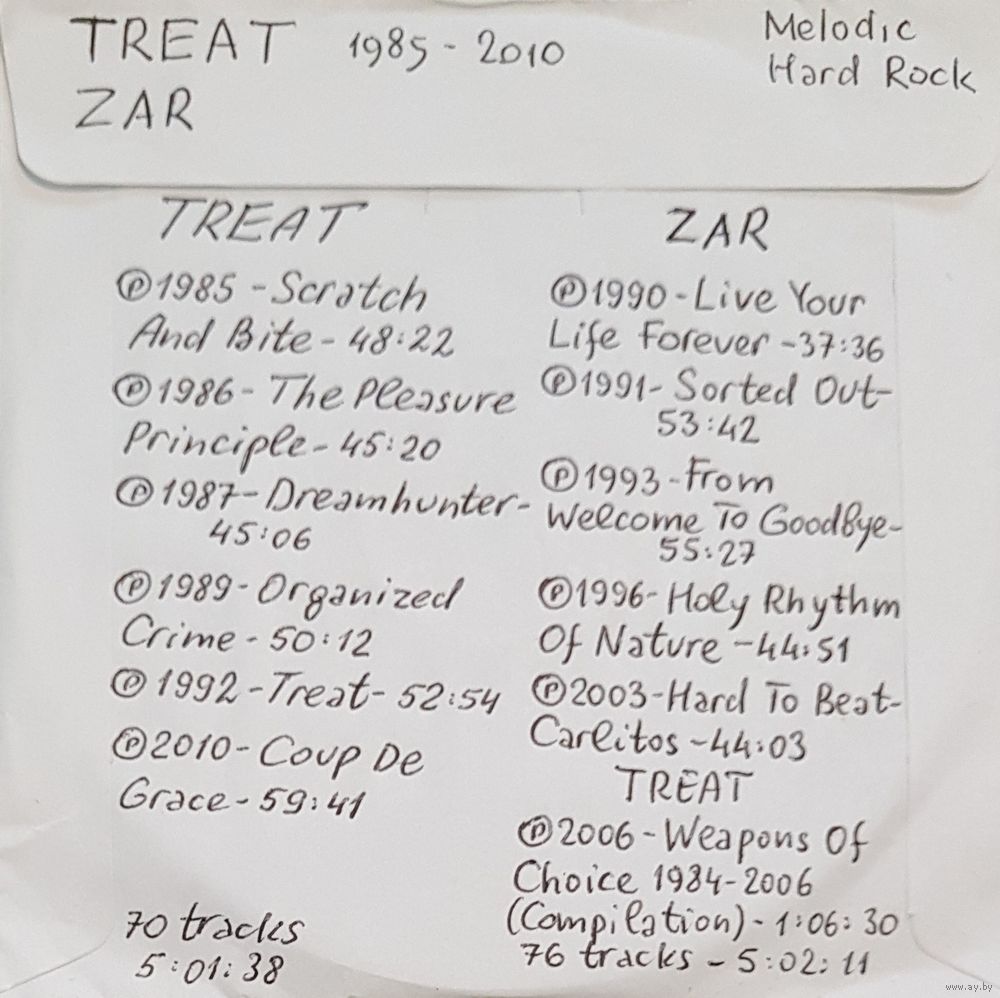 TREAT 1985 - 2010
ZAR
Melodic
Hard Rock
TREAT
Ⓟ1985 - Scratch
And Bite - 48:22
Ⓟ1986 - The Pleasure
Principle - 45:20
Ⓟ1987 - Dreamhunter -
45:06
Ⓟ1989 - Organized
Crime - 50:12
Ⓟ1992 - Treat - 52:54
Ⓟ2010 - Coup De
Grace - 59:41
70 tracks
5:01:38
ZAR
Ⓟ1990 - Live Your
Life Forever - 37:36
Ⓟ1991 - Sorted Out -
53:42
Ⓟ1993 - From
Welcome To Goodbye -
55:27
Ⓟ1996 - Holy Rhythm
Of Nature - 44:51
Ⓟ2003 - Hard To Beat -
Carlitos - 44:03
TREAT
Ⓟ2006 - Weapons Of
Choice 1984-2006
(Compilation) - 1:06:30
76 tracks - 5:02:11
www.ay.by